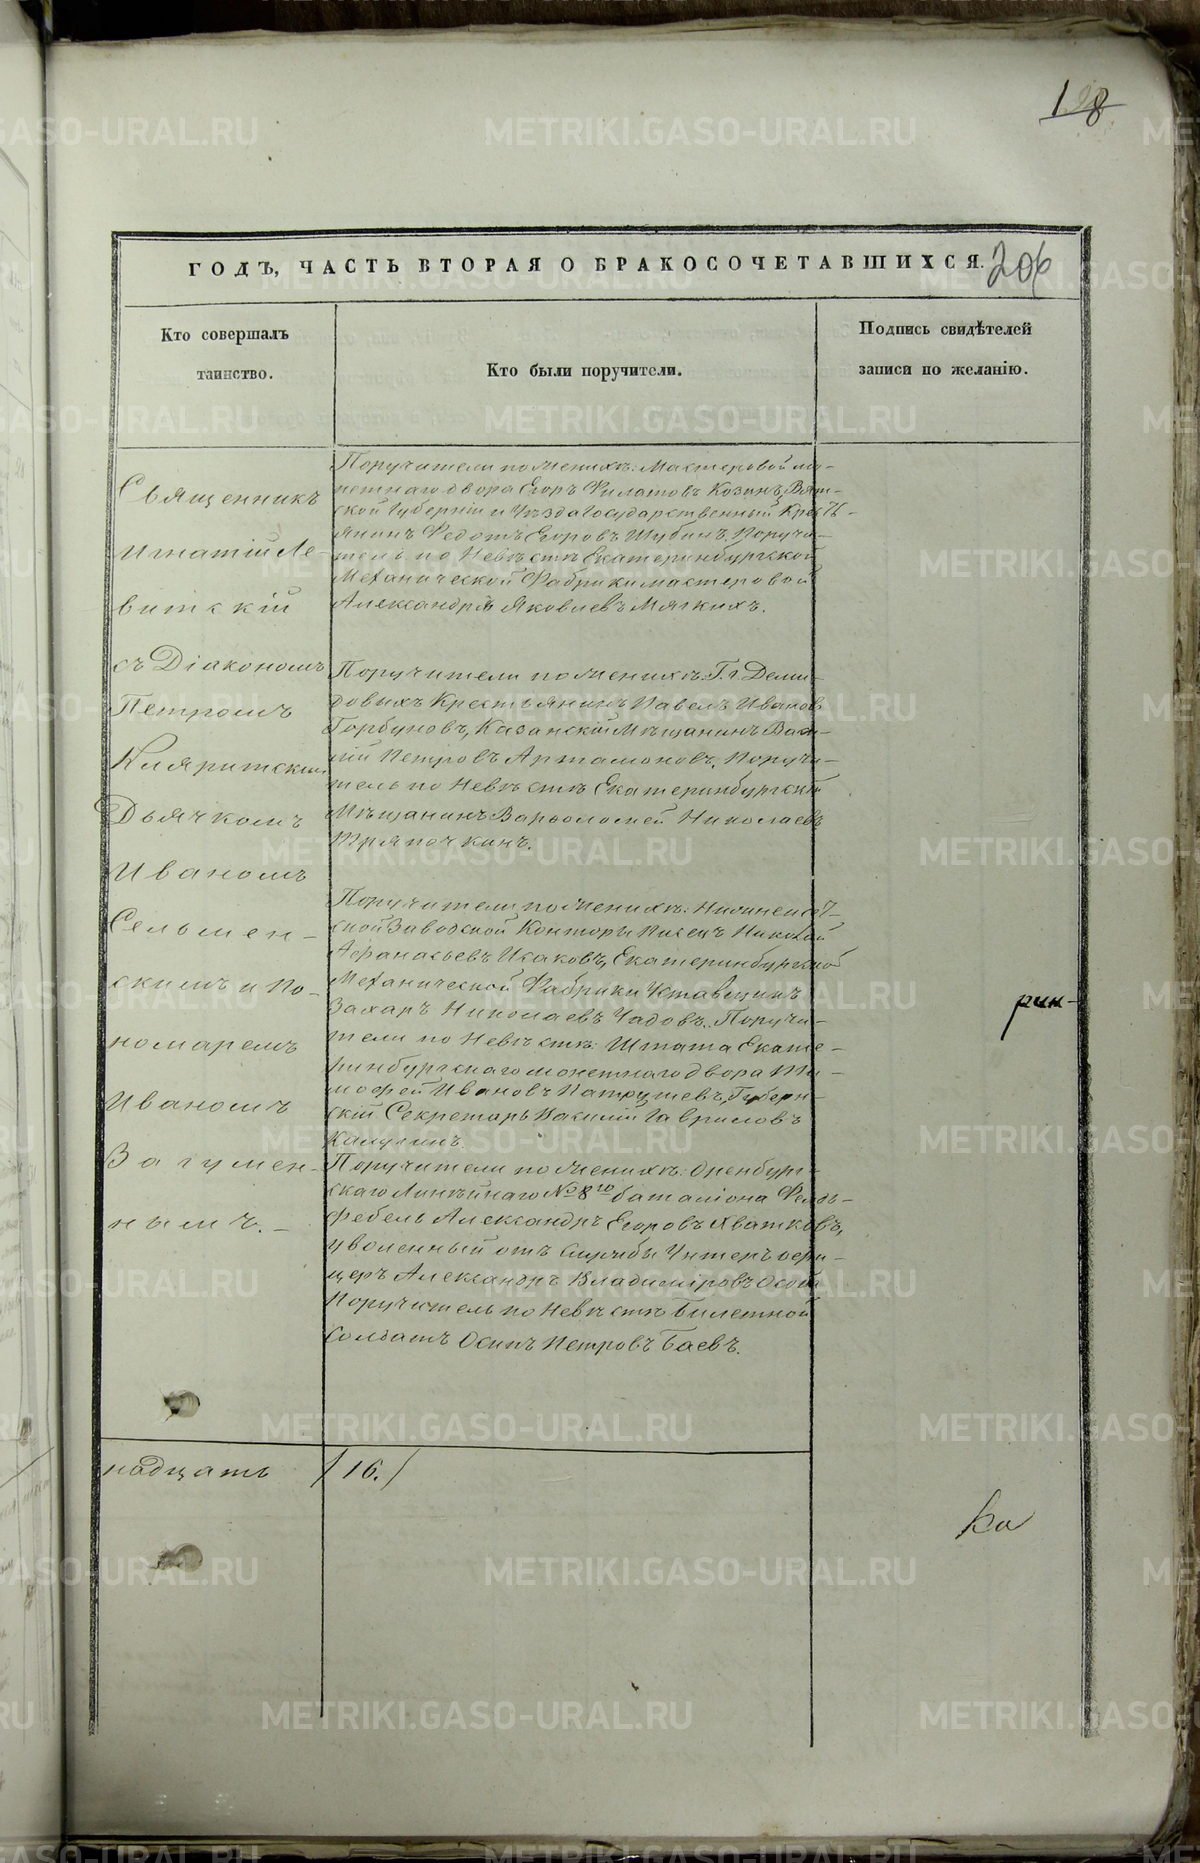 198
ГОДЪ, ЧАСТЬ ВТОРАЯ О БРАКОСОЧЕТАВШИХСЯ.
206
Кто совершалъ
таинство.
Кто были поручители.
Подпись свидѣтелей
записи по желанію.
Священникъ
Игнатій Ле-
витскій
съ Діакономъ
Петромъ
Дьячкомъ
Иваномъ
Сельмен-
скимъ и По-
номаремъ
Иваномъ
Загумен-
нымъ. –
Поручители по Женихѣ: Мастеровой мо-
нетнаго двора Егоръ Филатовъ Козинъ, Вят-
ской Губерніи и Уѣзда Государственный Крестъ-
янинъ Федотъ Егоровъ Шубинъ, Поручи-
тель по Невѣстѣ Екатеринбургской
Механической Фабрики мастеровой
Александръ Яковлевъ Мягкихъ.
Поручители по Женихѣ: Г.г. Деми-
довыхъ Крестьянинъ Павелъ Ивановъ
Горбуновъ, Казанскій Мѣщанинъ Васи-
лій Петровъ Артамоновъ, Поручи-
тель по Невѣстѣ Екатеринбургскій
Мѣщанинъ Варѳоломей Николаевъ
Тряпочкинъ.
Поручители по Женихѣ: Нижнеисет-
ской Заводской Конторы Писецъ Николай
Афанасьевъ Исаковъ, Екатеринбургской
Механической Фабрики Уставщикъ
Захаръ Николаевъ Чадовъ, Поручи-
тели по Невѣстѣ: Штата Екате-
ринбургскаго монетнаго двора Ти-
мофей Ивановъ Патрушевъ, Губерн-
скій Секретарь Василій Гавриловъ
Калугинъ.
Поручители по Женихѣ: Оренбург-
скаго Линѣйнаго №8го баталіона Фельд-
фебель Александръ Егоровъ Хватковъ,
уволенный отъ службы Унтеръ офи-
церъ Александръ Владиміровъ
Поручитель по Невѣстѣ Билетной
солдатъ Осипъ Петровъ Баевъ.
рин-
надцать /16./
Ва
METRIKI.GASO-URAL.RU